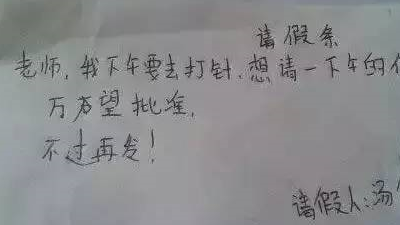 请假条
老师,我下午要去打针,想请一下午的
万方望批准,
不过再发!
请假人:汤